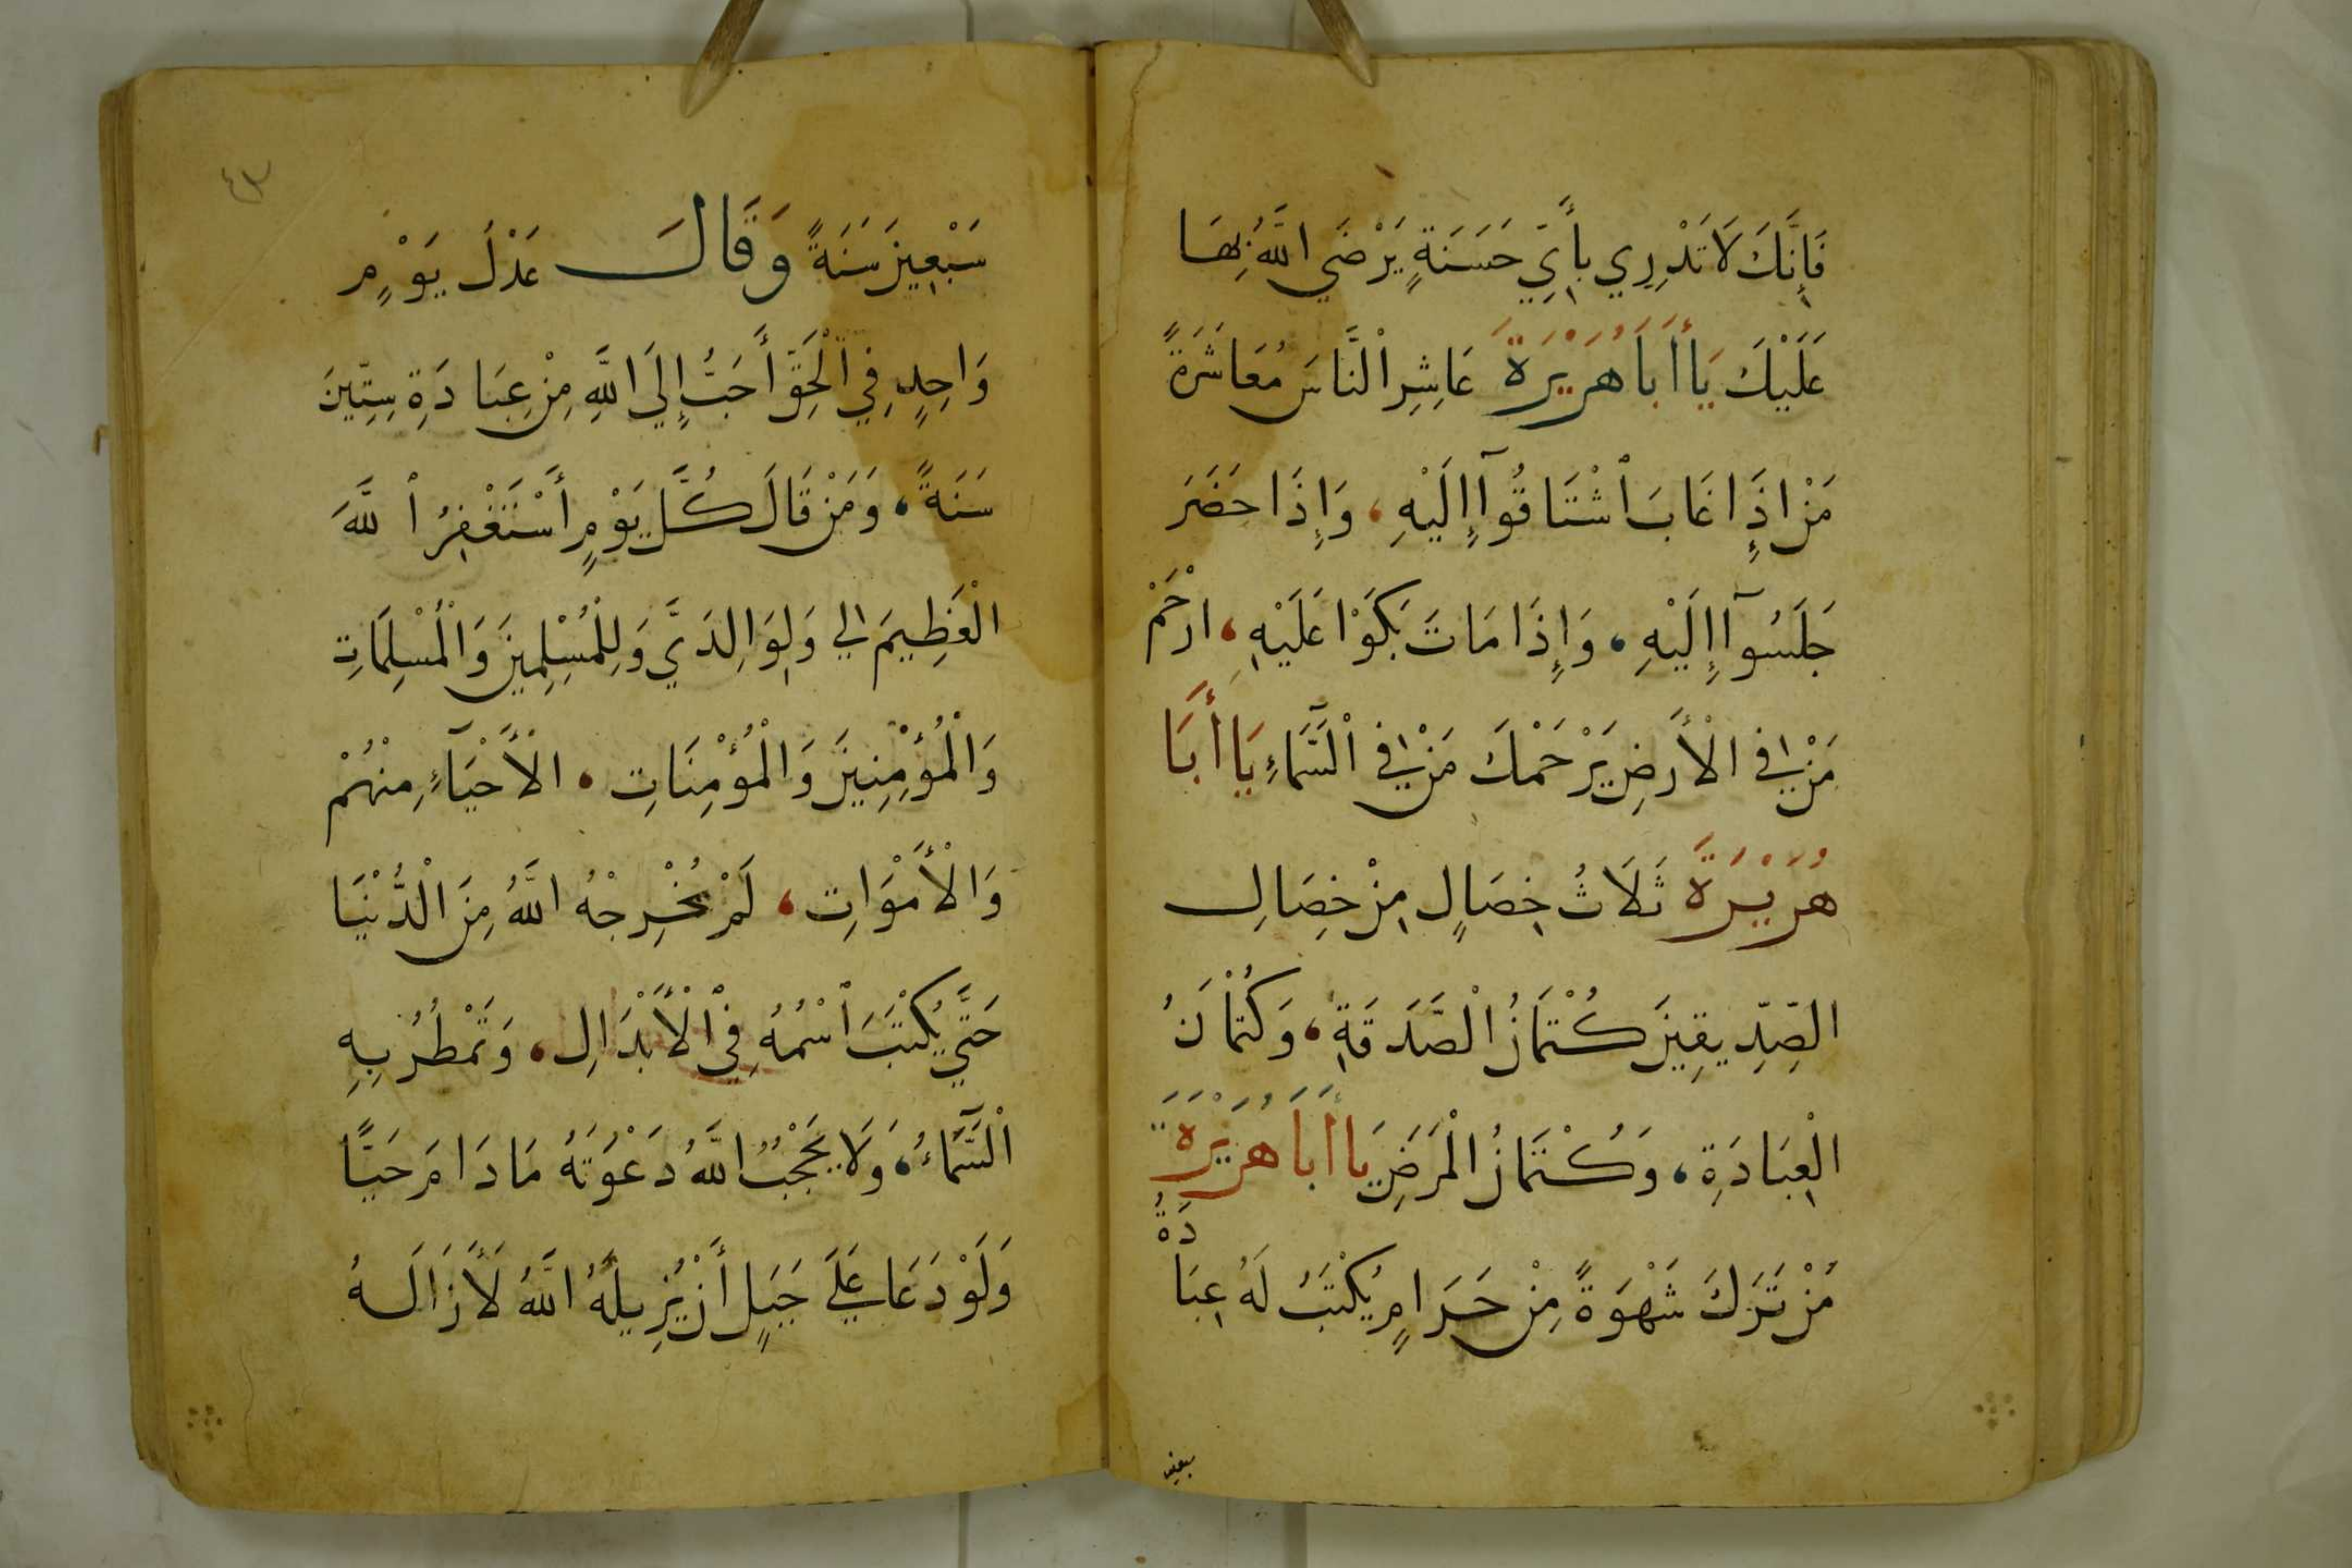 فَإِنَّكَ لَا تَدْرِي بِأَيِّ حَسَنَةٍ يَرْضَي اللَّهُ بِهَا
عَلَيْكَ يَا أَبَا هُرَيْرَةَ عَاشِرِ النَّاسَ مُعَاشَرَةً
مَنْ إِذَا غَابَ اشْتَاقُوآ إِلَيْهِ، وَإِذَا حَضَرَ
جَلَسُوآ إِلَيْهِ، وَإِذَا مَاتَ بَكَوْا عَلَيْهِ، ارْحَمْ
مَنْ فِي الْأَرْضِ يَرْحَمْكَ مَنْ فِي السَّمَآءِ يَا أَبَا
هُرَيْرَةَ ثَلَاثُ خِصَالٍ مِنْ خِصَالِ
الصِّدِّيقِينَ كُتْمَانُ الصَّدَقَةِ، وَكُتْمَانُ
الْعِبَادَةِ، وَكُتْمَانُ الْمَرَضِ يَا أَبَا هُرَيْرَةَ
مَنْ تَرَكَ شَهْوَةً مِنْ حَرَامٍ يُكْتَبُ لَهُ عِبَادَةُ
سبعين
٤٣
سَبْعِينَ سَنَةً وَقَالَ عَدْلُ يَوْمٍ
وَاحِدٍ فِي الْحَقِّ أَحَبُّ إِلَي اللَّهِ مِنْ عِبَادَةِ سِتِّينَ
سَنَةً، وَمَنْ قَالَ كُلَّ يَوْمٍ أَسْتَغْفِرُ اللَّهَ
الْعَظِيمَ لِي وَلِوَالِدَيَّ وَلِلْمُسْلِمِينَ وَالْمُسْلِمَاتِ
وَالْمُؤْمِنِينَ وَالْمُؤْمِنَاتِ. الْأَحْيَآءِ مِنْهُمْ
وَالْأَمْوَاتِ، لَمْ يُخْرِجْهُ اللَّهُ مِنَ الدُّنْيَا
حَتَّي يُكْتَبَ اسْمُهُ فِي الْأَبْدَالِ، وَتَمْطُرُ بِهِ
السَّمَآءُ، وَلَا يَحْجُبُ اللَّهُ دَعْوَتَهُ مَا دَامَ حَيًّا
وَلَوْ دَعَا عَلَي جَبَلٍ أَنْ يُزِيلَهُ اللَّهُ لَأَزَالَهُ